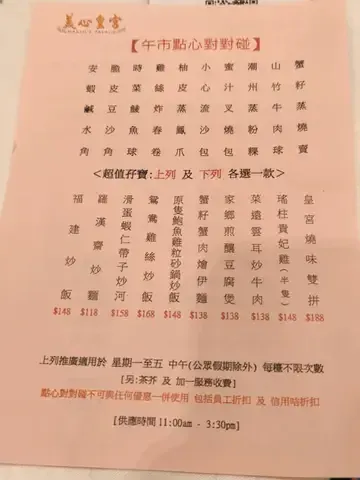 美心皇宮
MAXIM'S PALACE
【午市點心對對碰】
蟹籽蒸燒賣
山竹牛肉球
潮州蒸粉粿
蜜汁叉燒包
小心流沙包
柚皮蒸鳳爪
雞絲炸春卷
時菜鯪魚球
脆皮豆沙角
安蝦鹹水角
<超值孖寶:上列 及 下列 各選一款>
皇宮燒味雙拼 $188
瑤柱貴妃雞(半隻) $148
菜遠雲耳炒牛肉 $138
家鄉煎釀豆腐煲 $138
蟹籽蟹肉燴伊麵 $138
原隻鮑魚雞粒砂鍋炒飯 $148
鴛鴦雞絲炒飯 $168
滑蛋蝦仁帶子炒河 $158
羅漢齋炒麵 $118
福建炒飯 $148
上列推廣適用於 星期一至五 中午(公眾假期除外) 每檯不限次數
[另:茶芥 及 加一服務收費]
點心對對碰不可與任何優惠一併使用 包括員工折扣 及 信用咭折扣
[供應時間 11:00am - 3:30pm]